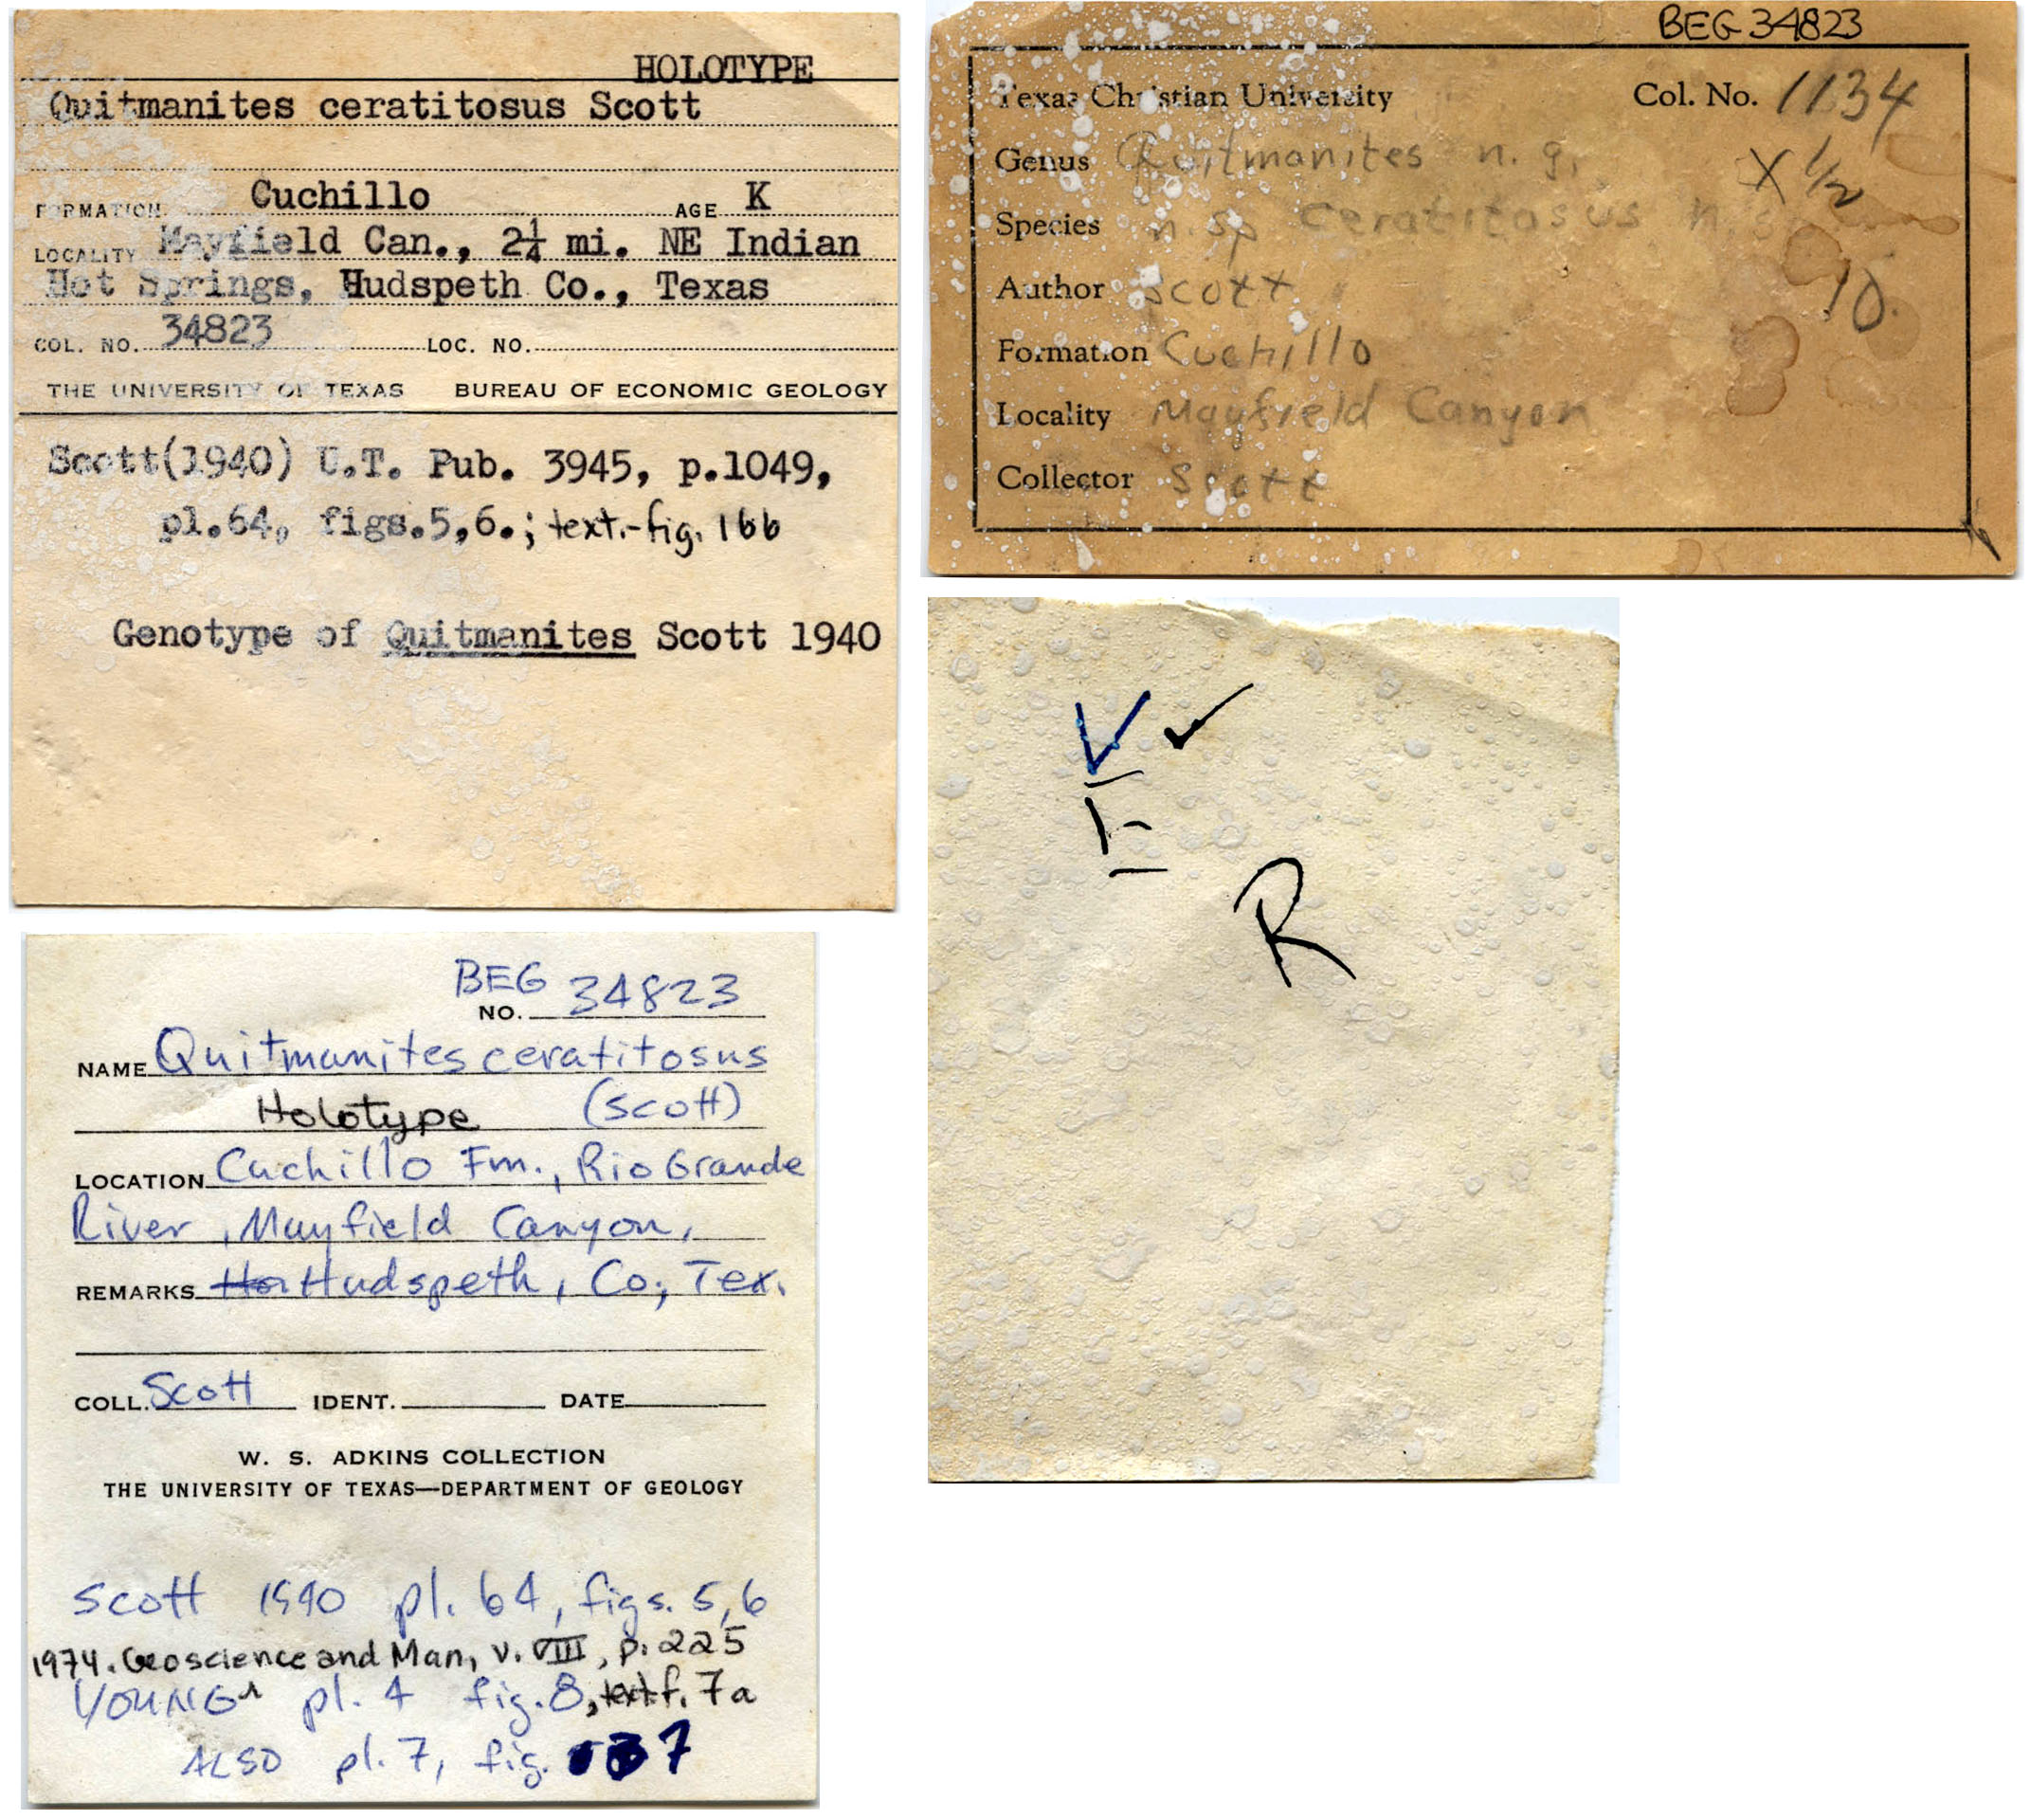 HOLOTYPE
Quitmanites ceratitosus Scott
FORMATION Cuchillo AGE K
LOCALITY Mayfield Can., 2¼ mi. NE Indian
Hot Springs, Hudspeth Co., Texas
COL. NO. 34823 LOC. NO.
THE UNIVERSITY OF TEXAS BUREAU OF ECONOMIC GEOLOGY
Scott(1940) U.T. Pub. 3945, p.1049,
pl.64, figs.5,6.; text.-fig. 166
Genotype of Quitmanites Scott 1940
BEG 34823
Texas Christian University Col. No. 1134
Genus Quitmanites n. g.
X 1/2
Species n. sp ceratitosus
Author Scott
10.
Formation Cuchillo
Locality Mayfield Canyon
Collector Scott
V ✓
R
BEG
NO. 34823
NAME Quitmanites ceratitosus
Holotype (Scott)
LOCATION Cuchillo Fm., Rio Grande
River, Mayfield Canyon,
REMARKS Hudspeth, Co., Tex.
COLL. Scott IDENT. DATE
W. S. ADKINS COLLECTION
THE UNIVERSITY OF TEXAS—DEPARTMENT OF GEOLOGY
Scott 1940 pl. 64, figs. 5,6
1974. Geoscience and Man, v. VIII, p. 225
YOUNG pl. 4 fig. 8, text f. 7a
ALSO pl. 7, fig. 7